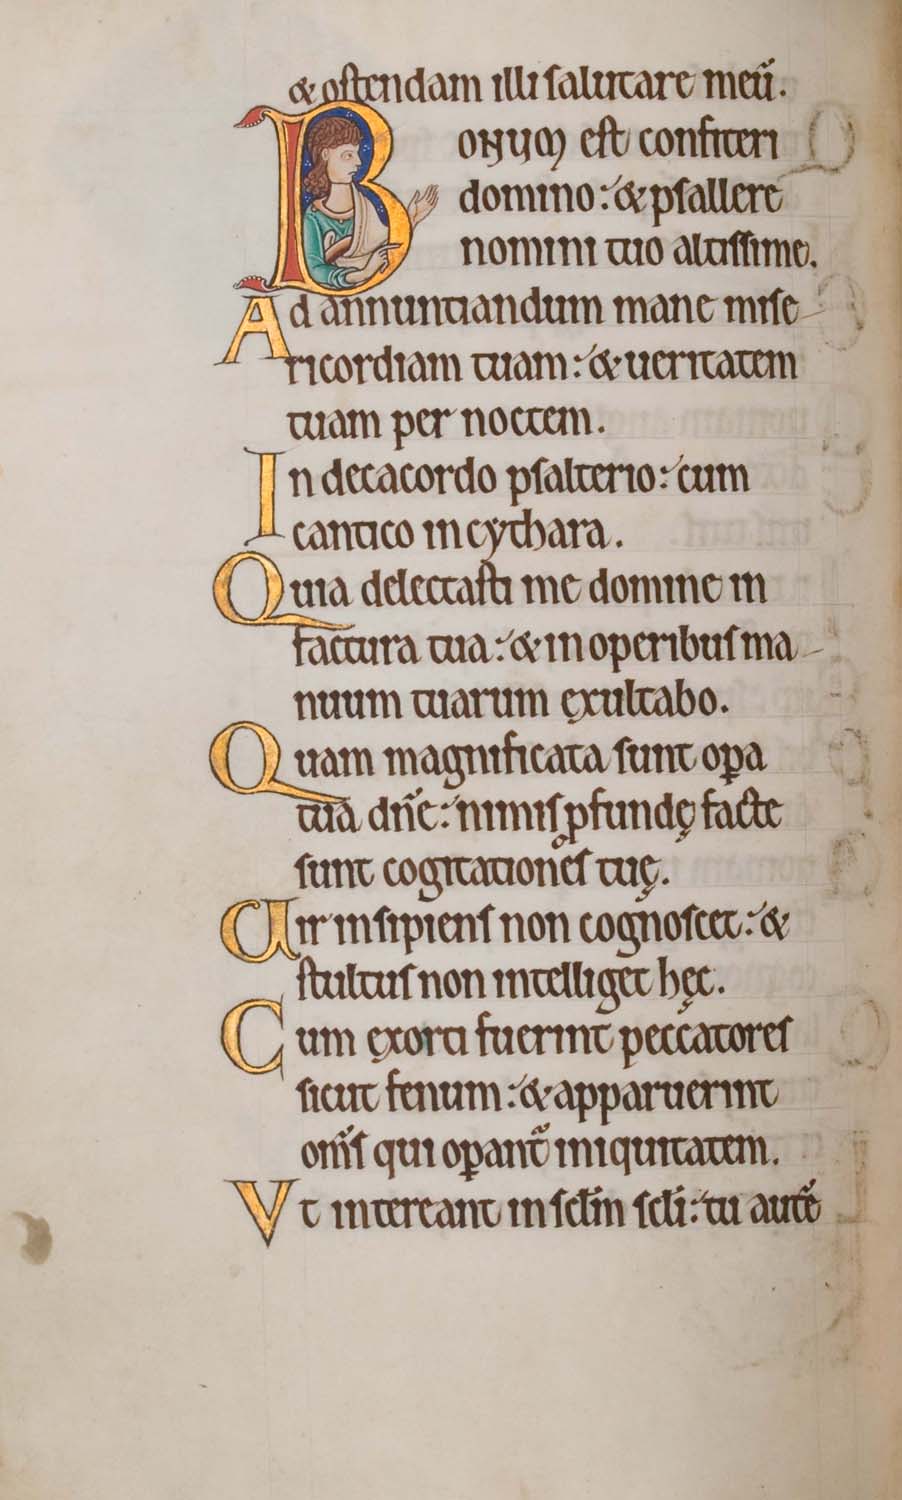 & oſtendam illi ſalutare meū.
BONUM eſt confiteri
domino: & pſallere
nomini tuo altiſſime.
Ad annuntiandum mane miſe-
ricordiam tuam: & ueritatem
tuam per noctem.
In decacordo pſalterio: cum
cantico in cythara.
Quia delectaſti me domine in
factura tua: & in operibuſ ma-
nuum tuarum exultabo.
Quam magnificata ſunt oꝑa
tua dn̄e: nimiſ ꝓfundę facte
ſunt cogitationeſ tuę.
Uir inſipienſ non cognoſcet: &
ſtultuſ non intelliget hęc.
Cum exorti fuerint peccatoreſ
ſicut fenum: & apparuerint
om̄ſ qui oꝑant᷑ iniquitatem.
Vt intereant in ſcl̄m ſcl̄i: tu autē